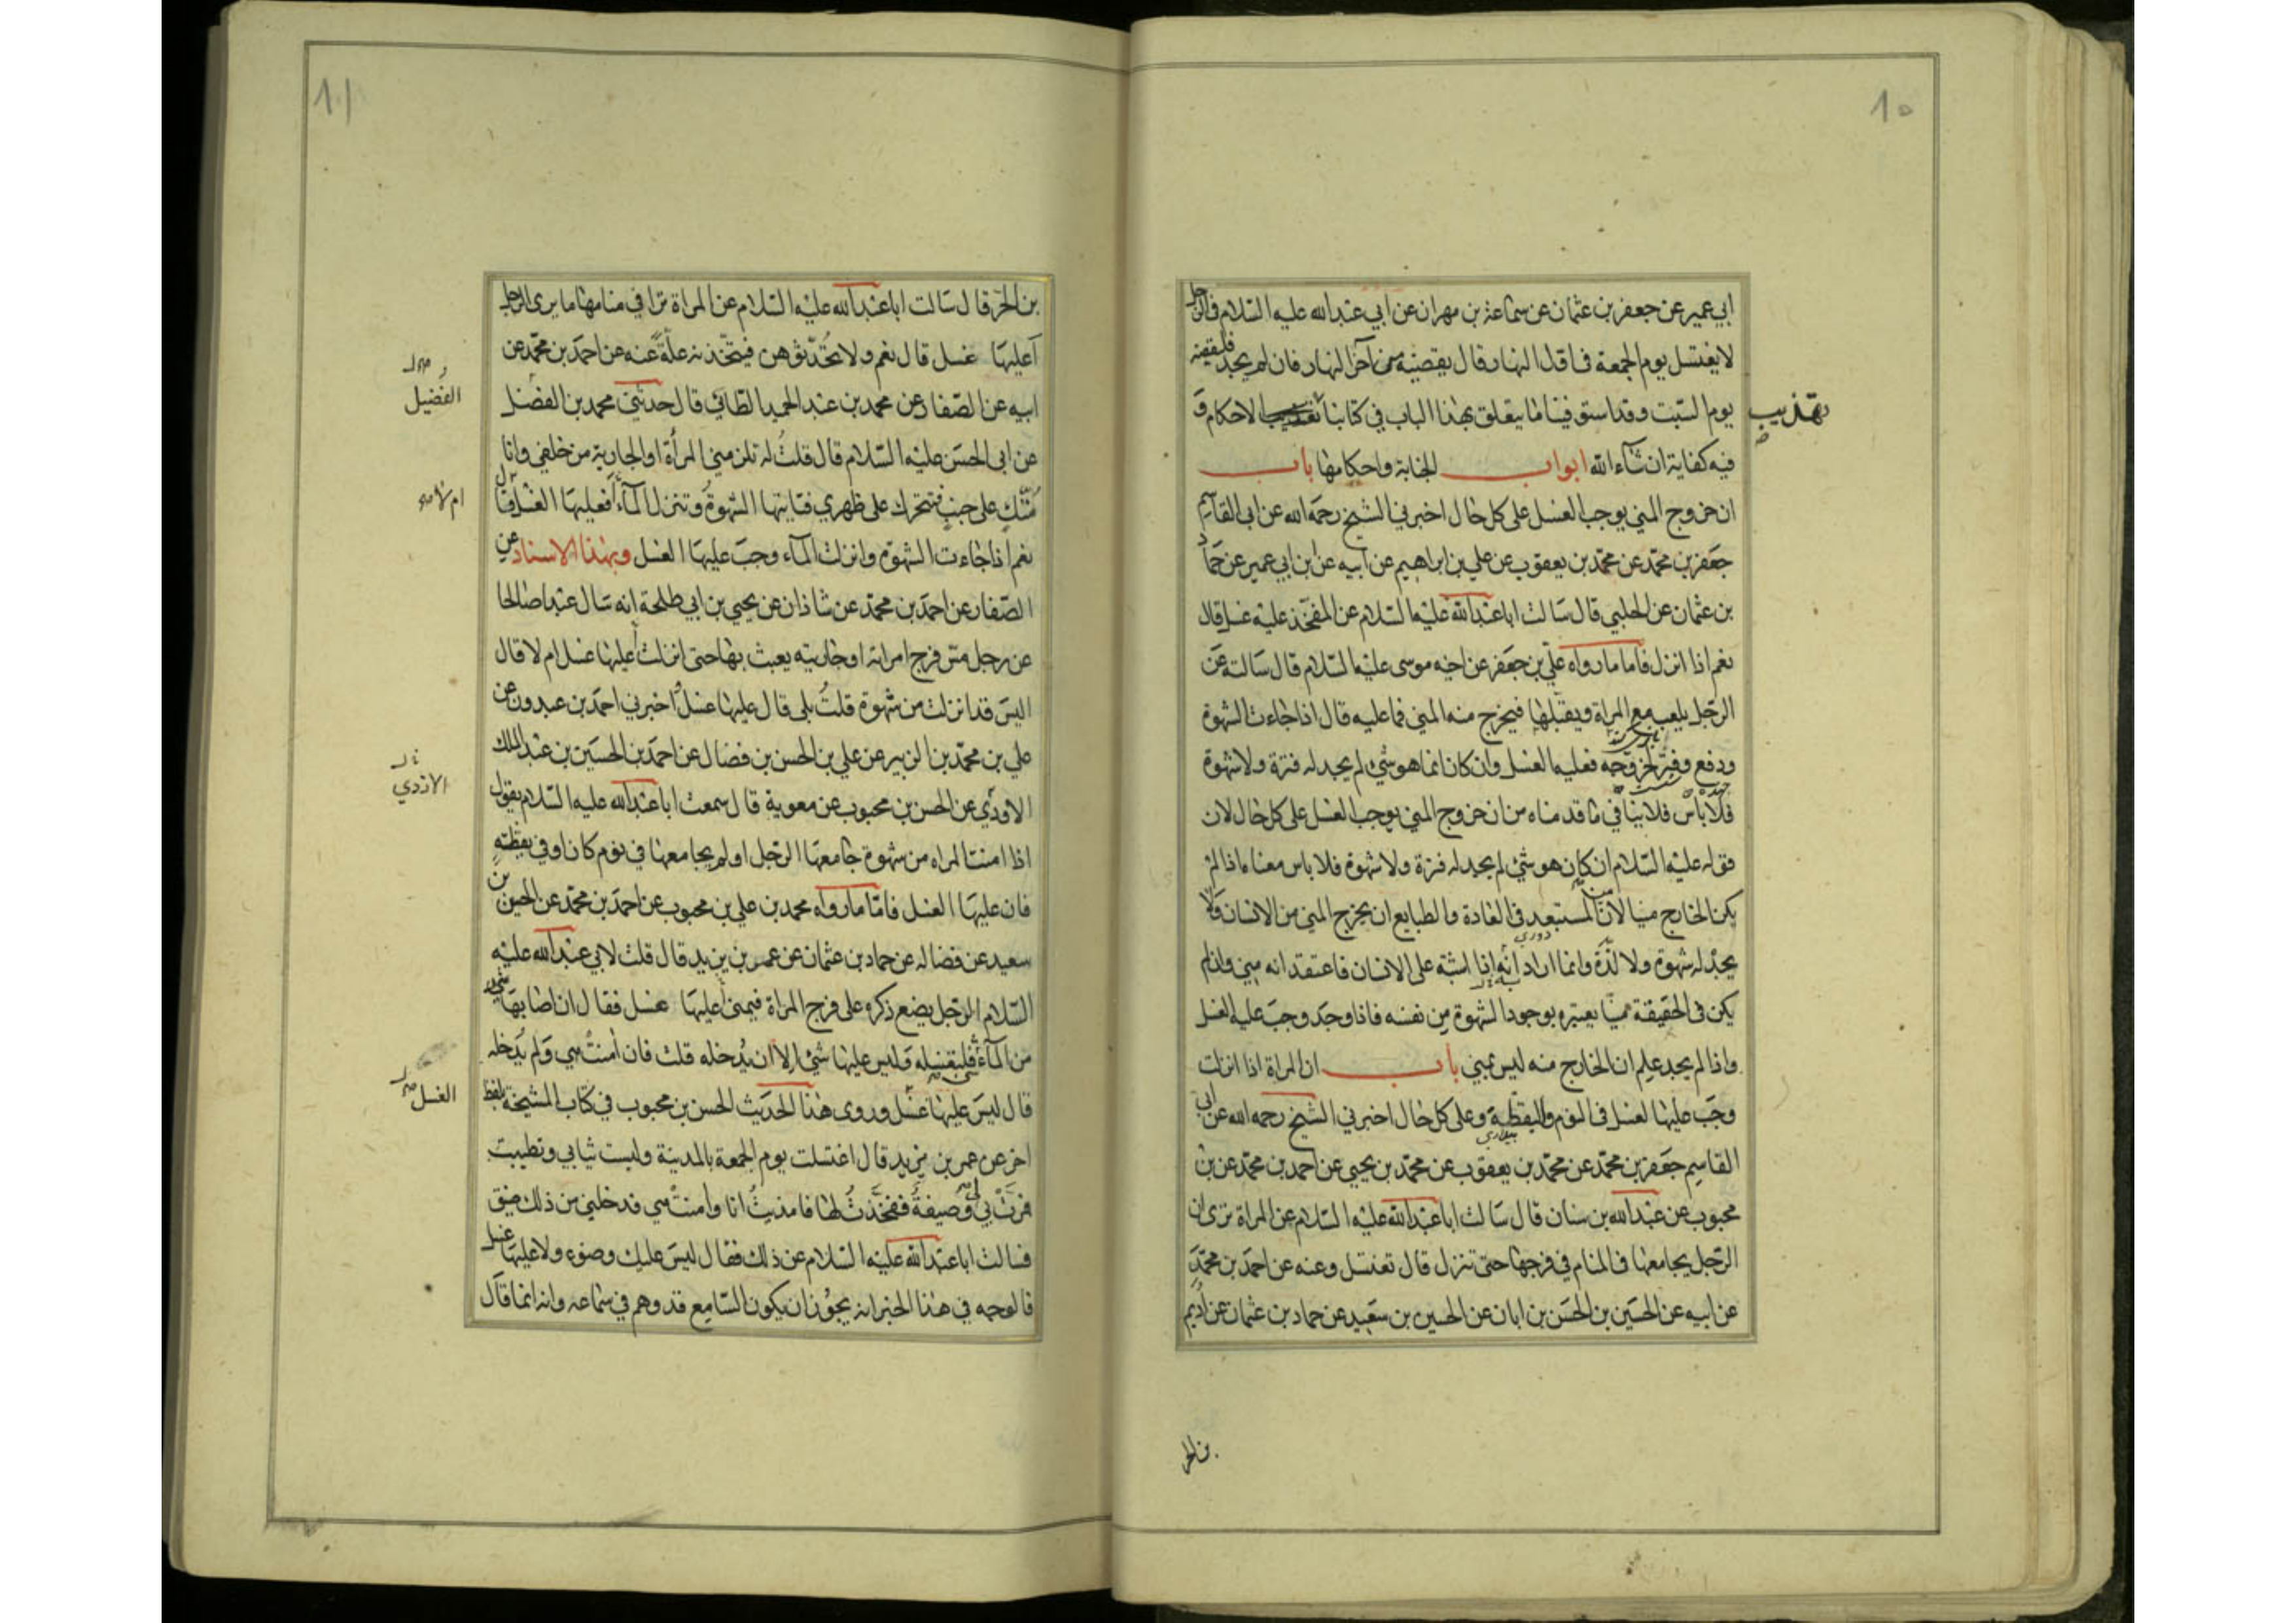 ١٥
ابي عمير عن جعفر بن عثمان عن سماعة بن مهران عن ابي عبدالله عليه السلام في الرجل
لا يغتسل يوم الجمعة في اول النهار قال يقضيه من آخر النهار فان لم يجد فليقضه
يوم السبت وقد استوفينا ما يتعلق بهذا الباب في كتابنا تهذيب الاحكام و
تهذيب
فيه كفاية ان شاء الله ابواب الجنابة واحكامها باب
ان خروج المني يوجب الغسل على كل حال اخبرني الشيخ رحمه الله عن ابي القاسم
جعفر بن محمد عن محمد بن يعقوب عن علي بن ابراهيم عن ابيه عن ابن ابي عمير عن حماد
بن عثمان عن الحلبي قال سالت ابا عبدالله عليه السلام عن المفخذ عليه غسل قال
نعم اذا انزل فاما ما رواه علي بن جعفر عن اخيه موسى عليه السلام قال سالته عن
الرجل يلعب مع المراة ويقبلها فيخرج منه المني فما عليه قال اذا جاءت الشهوة
ودفع وفتر لخروجه فعليه الغسل وان كان انما هو شئ لم يجد له فترة ولا شهوة
فلا باس فلا ينافي ما قدمناه من ان خروج المني يوجب الغسل على كل حال لان
قوله عليه السلام ان كان هو شئ لم يجد له فترة ولا شهوة فلا باس معناه اذا لم
يكن الخارج منيا لان المستبعد في العادة والطبايع ان يخرج المني من الانسان ولا
يجد له شهوة ولا لذة وانما اراد انه اذا اشتبه على الانسان فاعتقد انه مني وان لم
يكن في الحقيقة منيا يعتبره بوجود الشهوة من نفسه فاذا وجد وجب عليه الغسل
واذا لم يجد علم ان الخارج منه ليس بمني باب ان المراة اذا انزلت
وجب عليها الغسل في النوم واليقظة وعلى كل حال اخبرني الشيخ رحمه الله عن ابي
القاسم جعفر بن محمد عن محمد بن يعقوب عن محمد بن يحيى عن احمد بن محمد عن بن
محبوب عن عبدالله بن سنان قال سالت ابا عبدالله عليه السلام عن المراة ترى ان
الرجل يجامعها في المنام في فرجها حتى تنزل قال تغتسل وعنه عن احمد بن محمد
عن ابيه عن الحسين بن الحسن بن ابان عن الحسين بن سعيد عن حماد بن عثمان عن اديم
بن الحر
١٦
بن الحر قال سالت ابا عبدالله عليه السلام عن المراة ترا في منامها ما يرى الرجل
أعليها غسل قال نعم ولا تحدثوهن فيتخذنه علة عنه عن احمد بن محمد عن
ابيه عن الصفار عن محمد بن عبد الحميد الطائي قال حدثني محمد بن الفضل
الفضيل
عن ابي الحسن عليه السلام قال قلت له تلزمني المرأة او الجارية من خلفي وانا
متك على جنب فتتحرك على ظهري فتاتيها الشهوة وتنزل الماء أفعليها الغسل قال
ام لا
نعم اذا جاءت الشهوة وانزلت الماء وجب عليها الغسل وبهذا الاسناد عن
الصفار عن احمد بن محمد عن شاذان عن يحيى بن ابي طلحة انه سال عبدا صالحا
عن رجل مس فرج امراته او جاريته يعبث بها حتى انزلت أعليها غسل ام لا قال
اليس قد انزلت من شهوة قلت بلى قال عليها غسل اخبرني احمد بن عبدون عن
علي بن محمد بن الزبير عن علي بن الحسن بن فضال عن احمد بن الحسين بن عبد الملك
الاودي عن الحسن بن محبوب عن معوية قال سمعت ابا عبدالله عليه السلام يقول
الازدي
اذا امنت المراه من شهوة جامعها الرجل او لم يجامعها في نوم كان او في يقظة
فان عليها الغسل فاما ما رواه محمد بن علي بن محبوب عن احمد بن محمد عن الحسين بن
سعيد عن فضاله عن حماد بن عثمان عن عمر بن يزيد قال قلت لابي عبدالله عليه
السلام الرجل يضع ذكره على فرج المراة فيمنى أعليها غسل فقال ان اصابها شئ
من الماء فليغسله وليس عليها شئ الا ان يدخله قلت فان أمنت هي ولم يدخله
قال ليس عليها غسل وروى هذا الحديث الحسن بن محبوب في كتاب المشيخة بلفظ
الغسل
اخر عن عمر بن يزيد قال اغتسلت يوم الجمعة بالمدينة ولبست ثيابي وتطيبت
فمرت بي وصيفة ففخذت لها فامذيت انا وأمنت هي فدخلني من ذلك ضيق
فسالت ابا عبدالله عليه السلام عن ذلك فقال ليس عليك وضوء ولا عليها غسل
فالوجه في هذا الخبر انه يجوز ان يكون السامع قد وهم في سماعه وانه انما قال